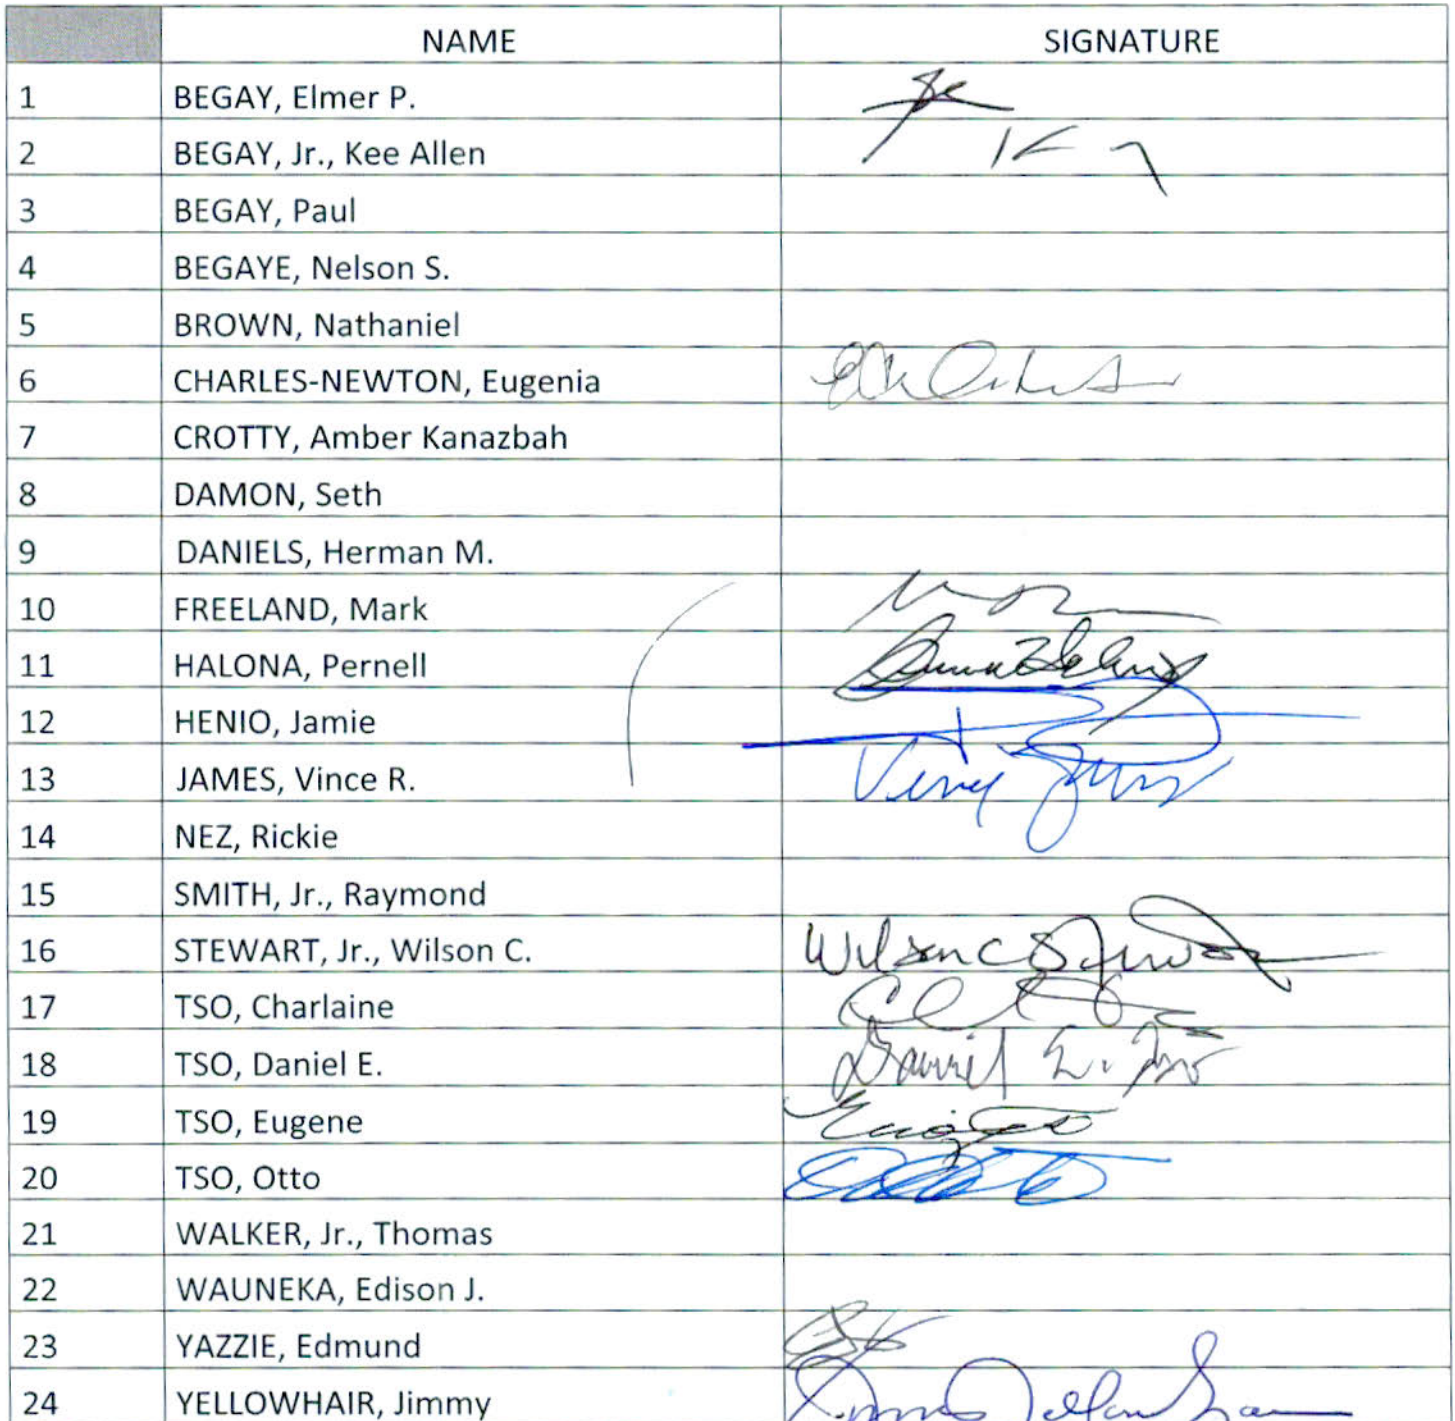 NAME SIGNATURE
1 BEGAY, Elmer P.
2 BEGAY, Jr., Kee Allen
3 BEGAY, Paul
4 BEGAYE, Nelson S.
5 BROWN, Nathaniel
6 CHARLES-NEWTON, Eugenia
7 CROTTY, Amber Kanazbah
8 DAMON, Seth
9 DANIELS, Herman M.
10 FREELAND, Mark
11 HALONA, Pernell
12 HENIO, Jamie
13 JAMES, Vince R.
14 NEZ, Rickie
15 SMITH, Jr., Raymond
16 STEWART, Jr., Wilson C. Wilson C
17 TSO, Charlaine
18 TSO, Daniel E. Daniel E. Tso
19 TSO, Eugene
20 TSO, Otto
21 WALKER, Jr., Thomas
22 WAUNEKA, Edison J.
23 YAZZIE, Edmund
24 YELLOWHAIR, Jimmy